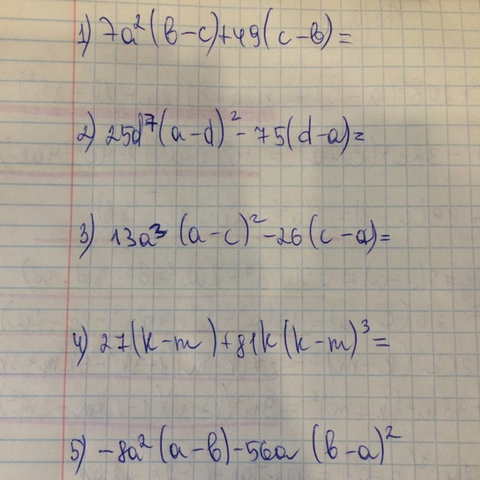 1) 7a²(в-с)+49(с-в)=
2) 25d⁷(a-d)²-75(d-a)=
3) 13a³(a-c)²-26(c-a)=
4) 27(k-m)+81k(k-m)³=
5) -8a²(a-в)-56a(в-a)²